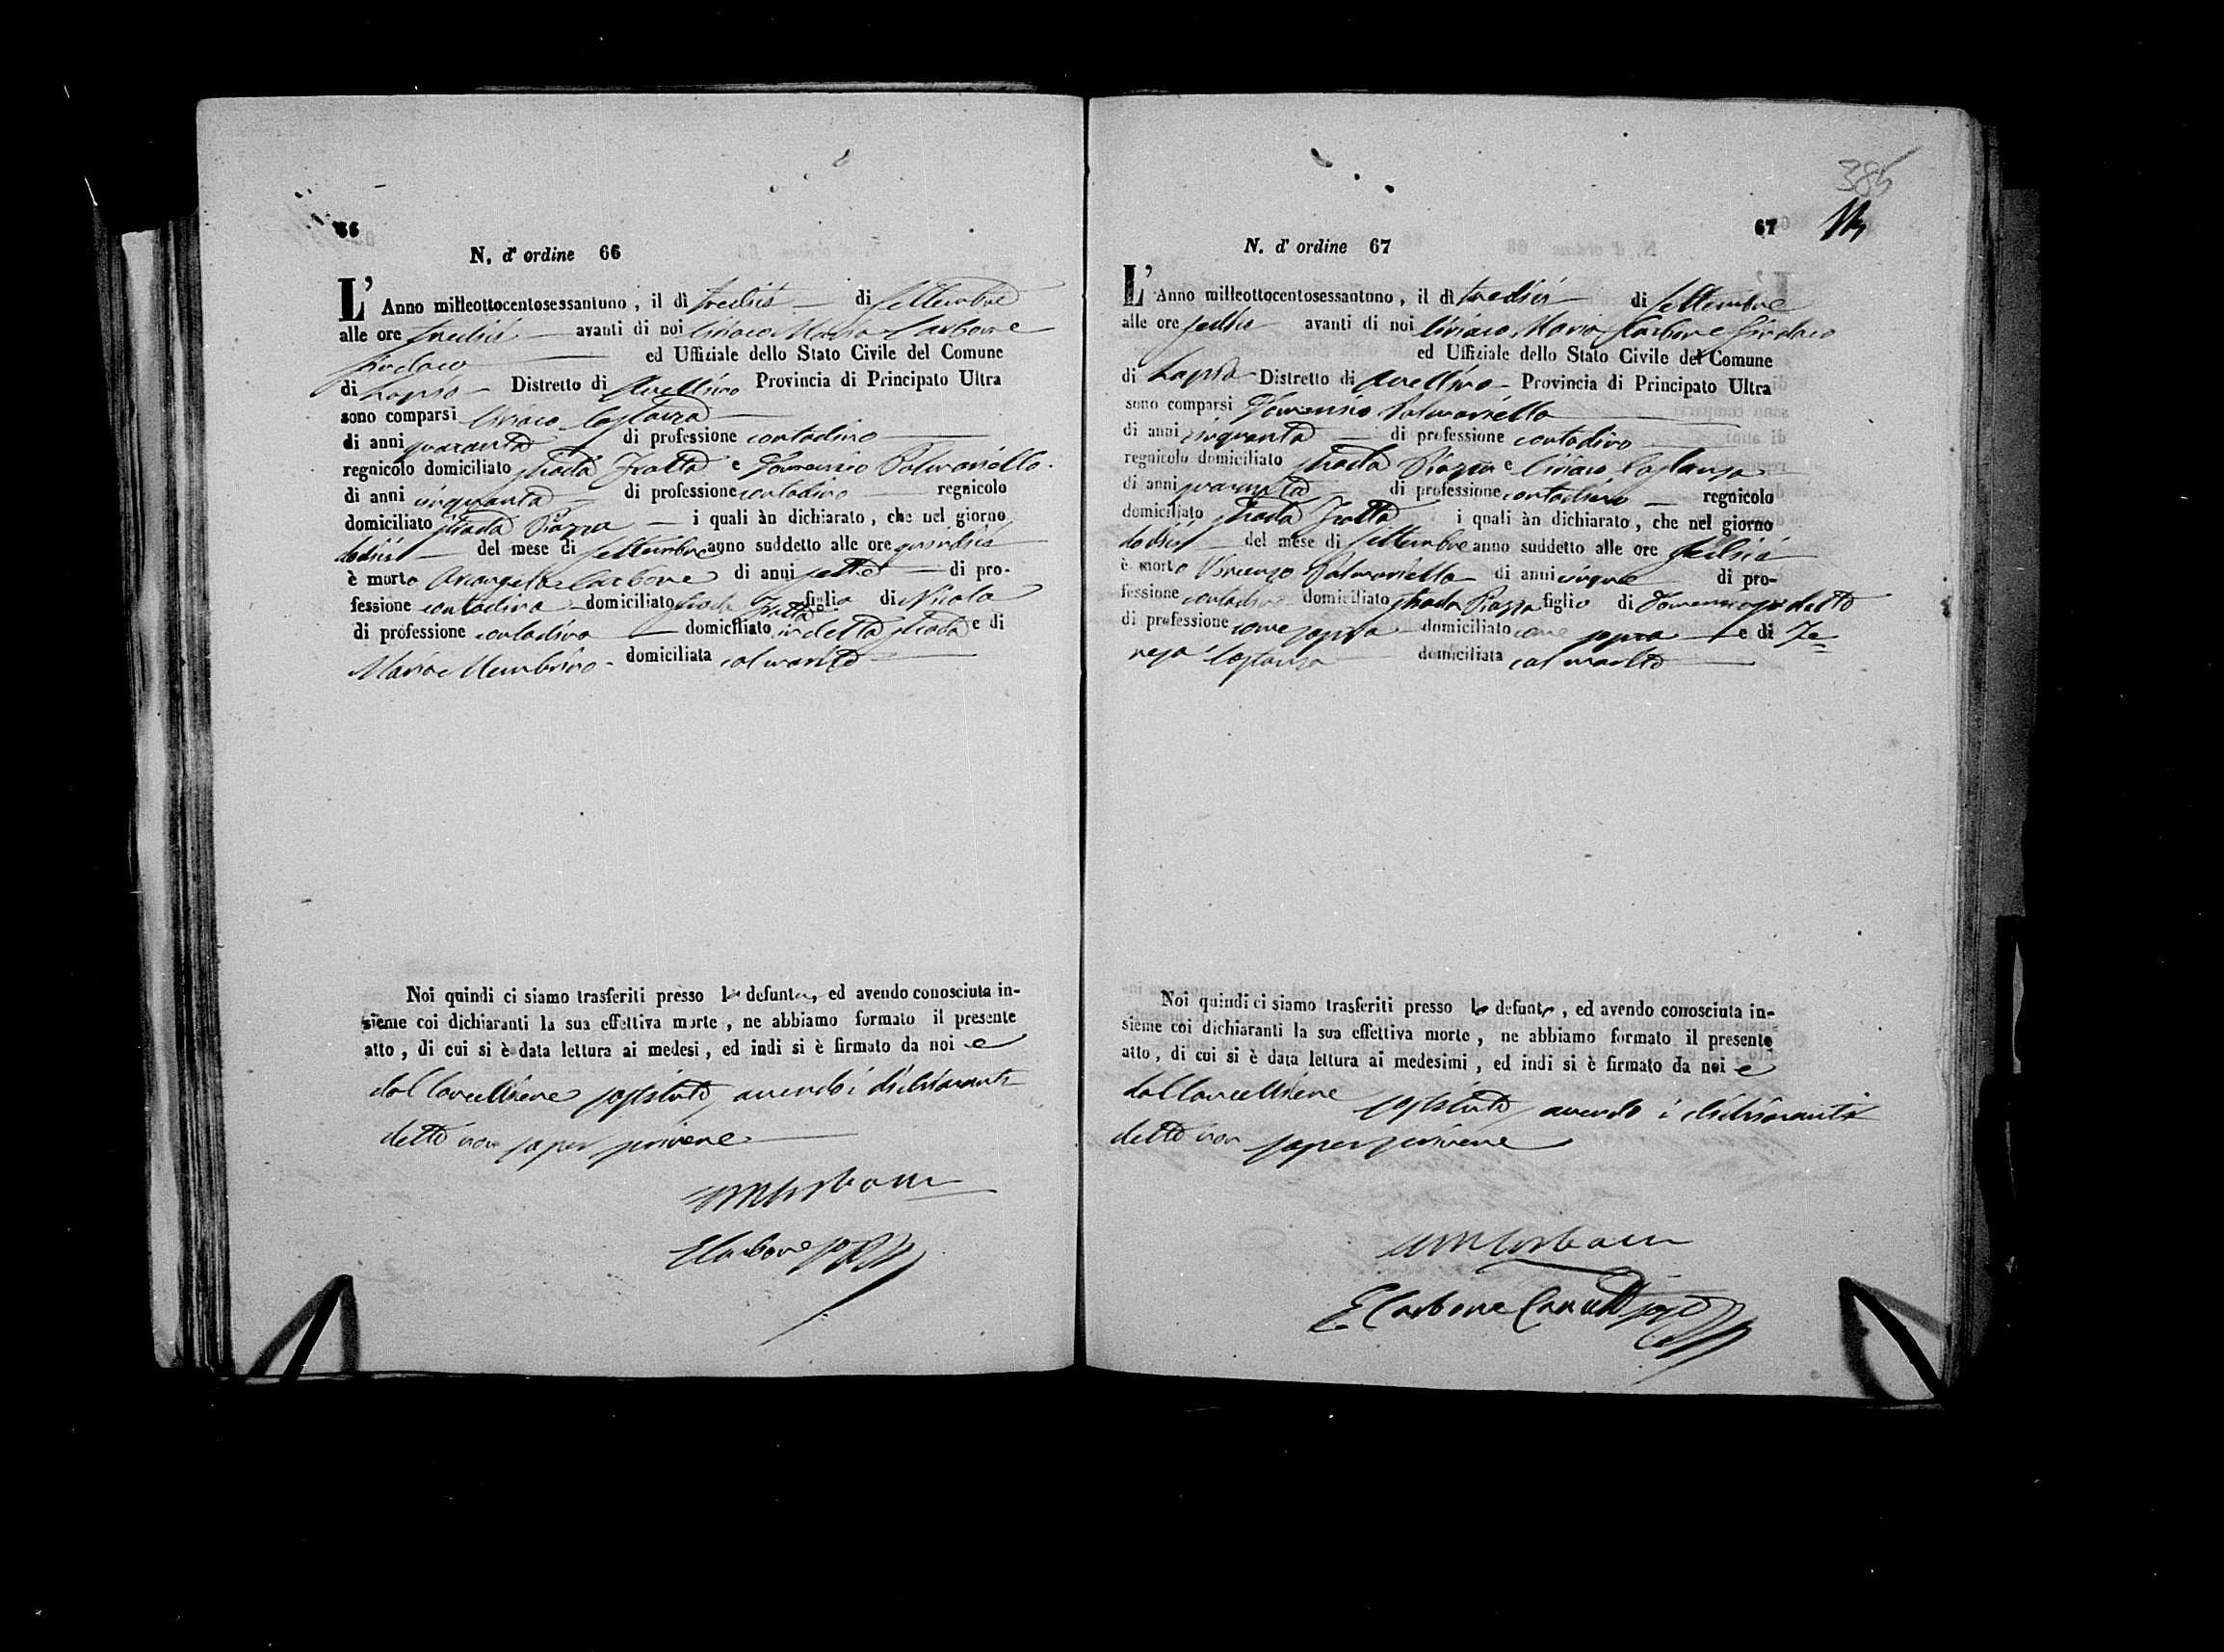 66
N. d' ordine 66
L' Anno milleottocentosessantuno, il dì tredici di Settembre
alle ore tredici avanti di noi Ciriaco Maria Carbone
Sindaco ed Uffiziale dello Stato Civile del Comune
di Lapio Distretto di Avellino Provincia di Principato Ultra
sono comparsi Ciriaco Costanza
di anni quaranta di professione contadino
regnicolo domiciliato strada Fratta e Domenico Palmariello
di anni cinquanta di professione contadino regnicolo
domiciliato strada Piazza i quali àn dichiarato, che nel giorno
dodici del mese di Settembre anno suddetto alle ore quindici
è morta Arcangela Carbone di anni sette di pro-
fessione contadina domiciliato strada Fratta figlia di Nicola
di professione contadino domiciliato in detta strada e di
Maria Membrino domiciliata col marito
Noi quindi ci siamo trasferiti presso la defunta, ed avendo conosciuta in-
sieme coi dichiaranti la sua effettiva morte, ne abbiamo formato il presente
atto, di cui si è data lettura ai medesi, ed indi si è firmato da noi e
dal Cancelliere sostituto, avendo i dichiaranti
detto non saper scrivere
CM Carbone
E Carbone
385
67
N. d' ordine 67
L' Anno milleottocentosessantuno, il dì tredici di Settembre
alle ore sedici avanti di noi Ciriaco Maria Carbone Sindaco
ed Uffiziale dello Stato Civile del Comune
di Lapio Distretto di Avellino Provincia di Principato Ultra
sono comparsi Domenico Palmariello
di anni cinquanta di professione contadino
regnicolo domiciliato strada Piazza e Ciriaco Costanza
di anni quaranta di professione contadino regnicolo
domiciliato strada Fratta i quali àn dichiarato, che nel giorno
dodici del mese di Settembre anno suddetto alle ore sedici
è morto Vincenzo Palmariello di anni cinque di pro-
fessione contadino domiciliato strada Piazza figlio di Domenico sudetto
di professione come sopra domiciliato come sopra e di Te=
resa Costanza domiciliata col marito
Noi quindi ci siamo trasferiti presso lo defunto, ed avendo conosciuta in-
sieme coi dichiaranti la sua effettiva morte, ne abbiamo formato il presente
atto, di cui si è data lettura ai medesimi, ed indi si è firmato da noi e
dal Cancelliere sostituto, avendo i dichiaranti
detto non saper scrivere
CM Carbone
E Carbone